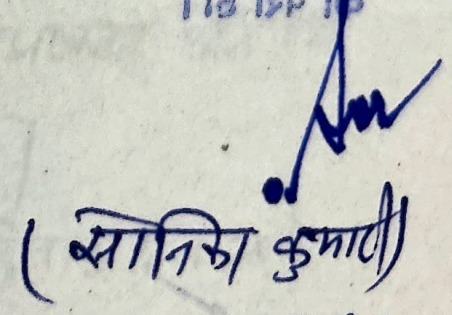 (सोनिका कुमारी)